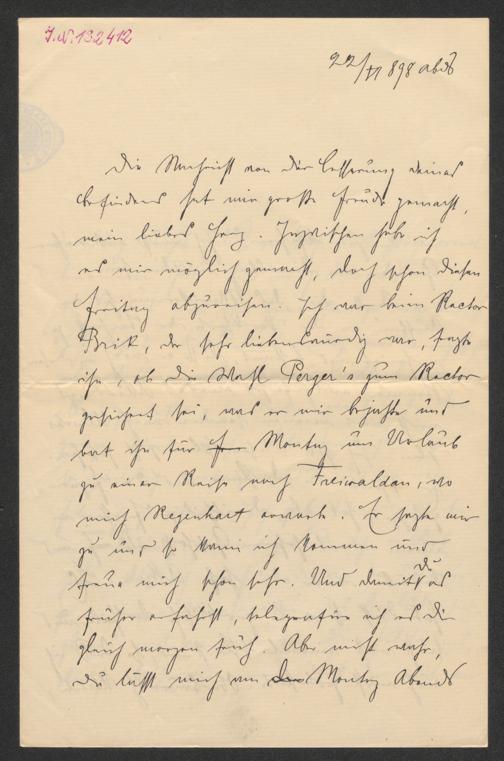 J.N. 132412
22/VI 898 abds
Die Nachricht von der Besserung deines
Befindens hat mir große Freude gemacht,
mein liebes Herz. Inzwischen habe ich
es mir möglich gemacht, doch schon diesen
Freitag abzureisen. Ich war beim Rector
Brik, der sehr liebenswürdig war, fragte
ihn, ob die Wahl Perger's zum Rector
gesichert sei, was er mir bejahte und
bat ihn für Montag um Urlaub
zu einer Reise nach Freiwaldau, wo
mich Regenhart erwarte. Er sagte mir
zu und so kann ich kommen und
freue mich schon sehr. Und damit Du es
früher erfahrst, telegrafire ich es Dir
gleich morgen früh. Aber nicht wahr,
Du läßt mich am Montag Abends